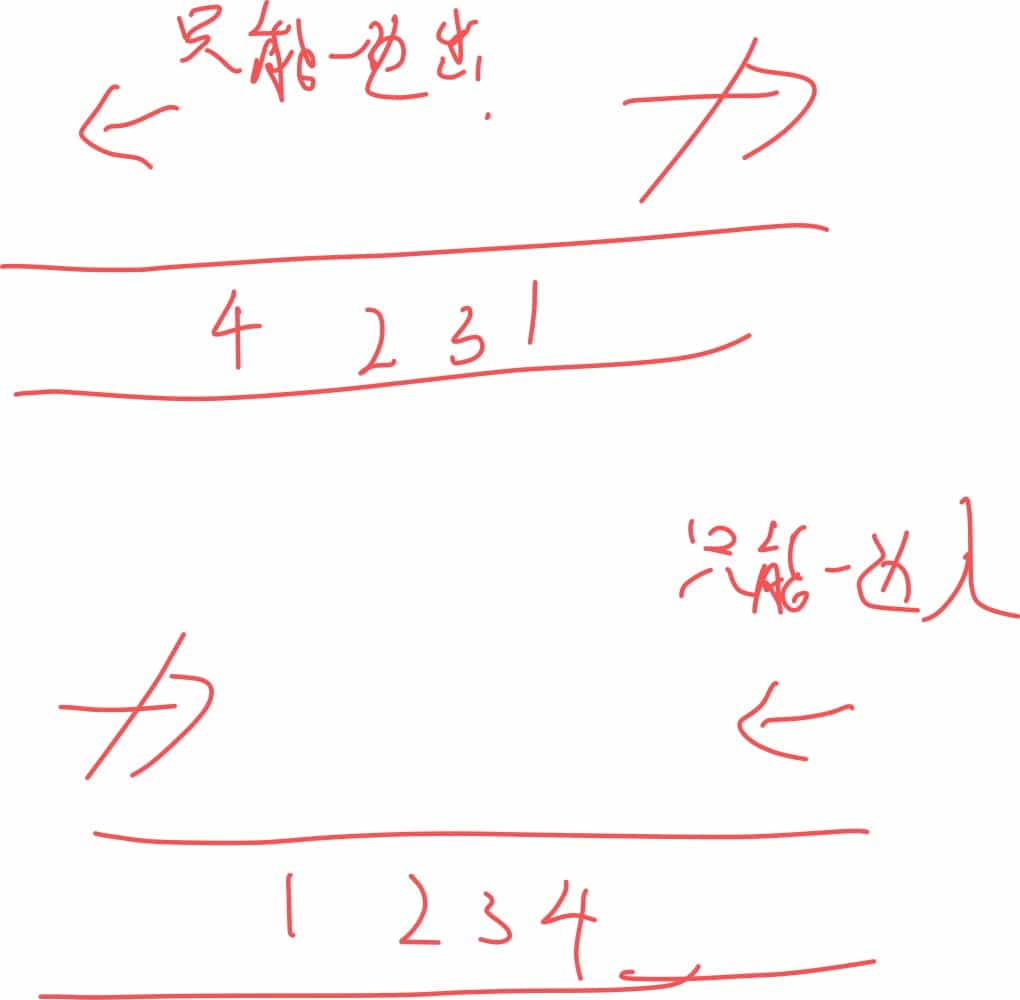 只能一边出.
4 2 3 1
只能一边入
1 2 3 4